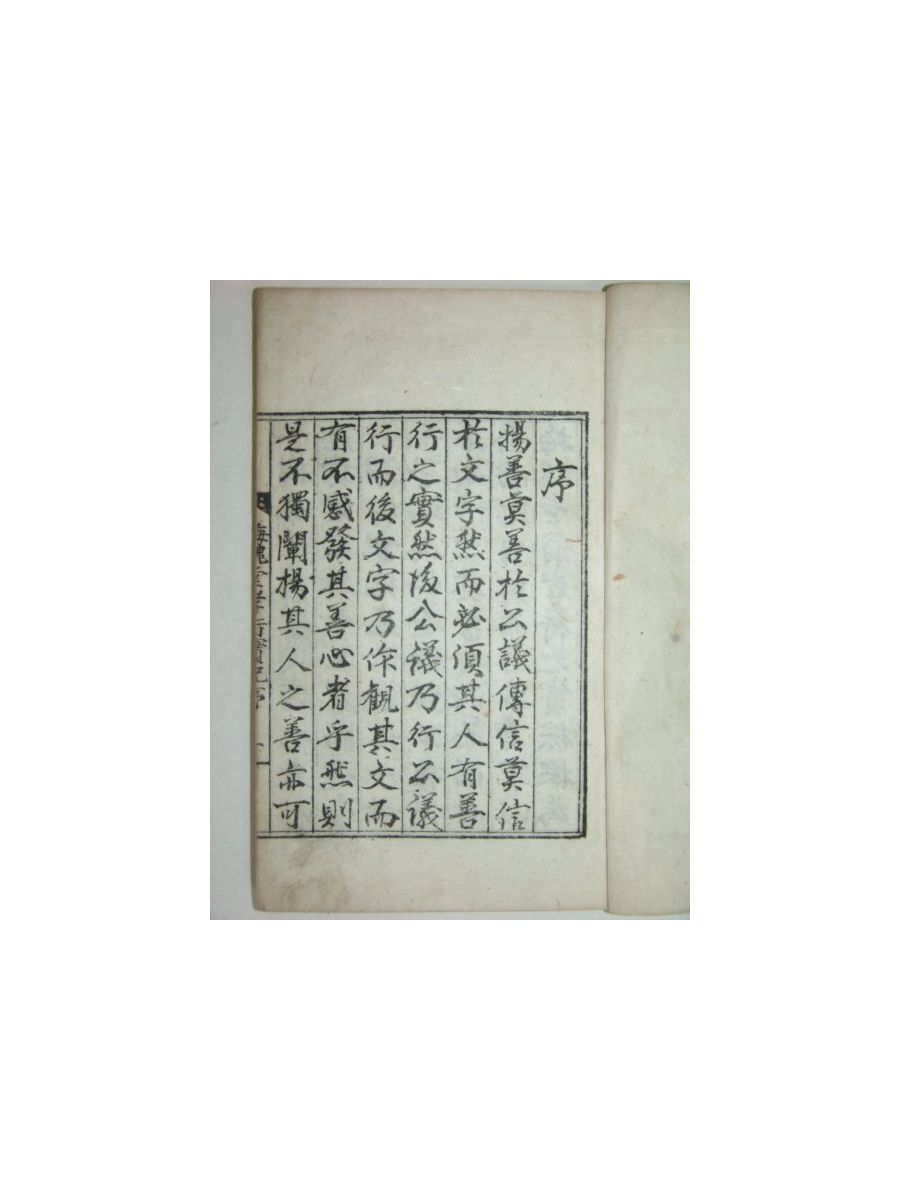 序
揚善莫善於公議傳信莫信
於文字然而必須其人有善
行之實然後公議乃行公議
行而後文字乃作觀其文而
有不感發其善心者乎然則
是不獨闡揚其人之善亦可
行實記序 一